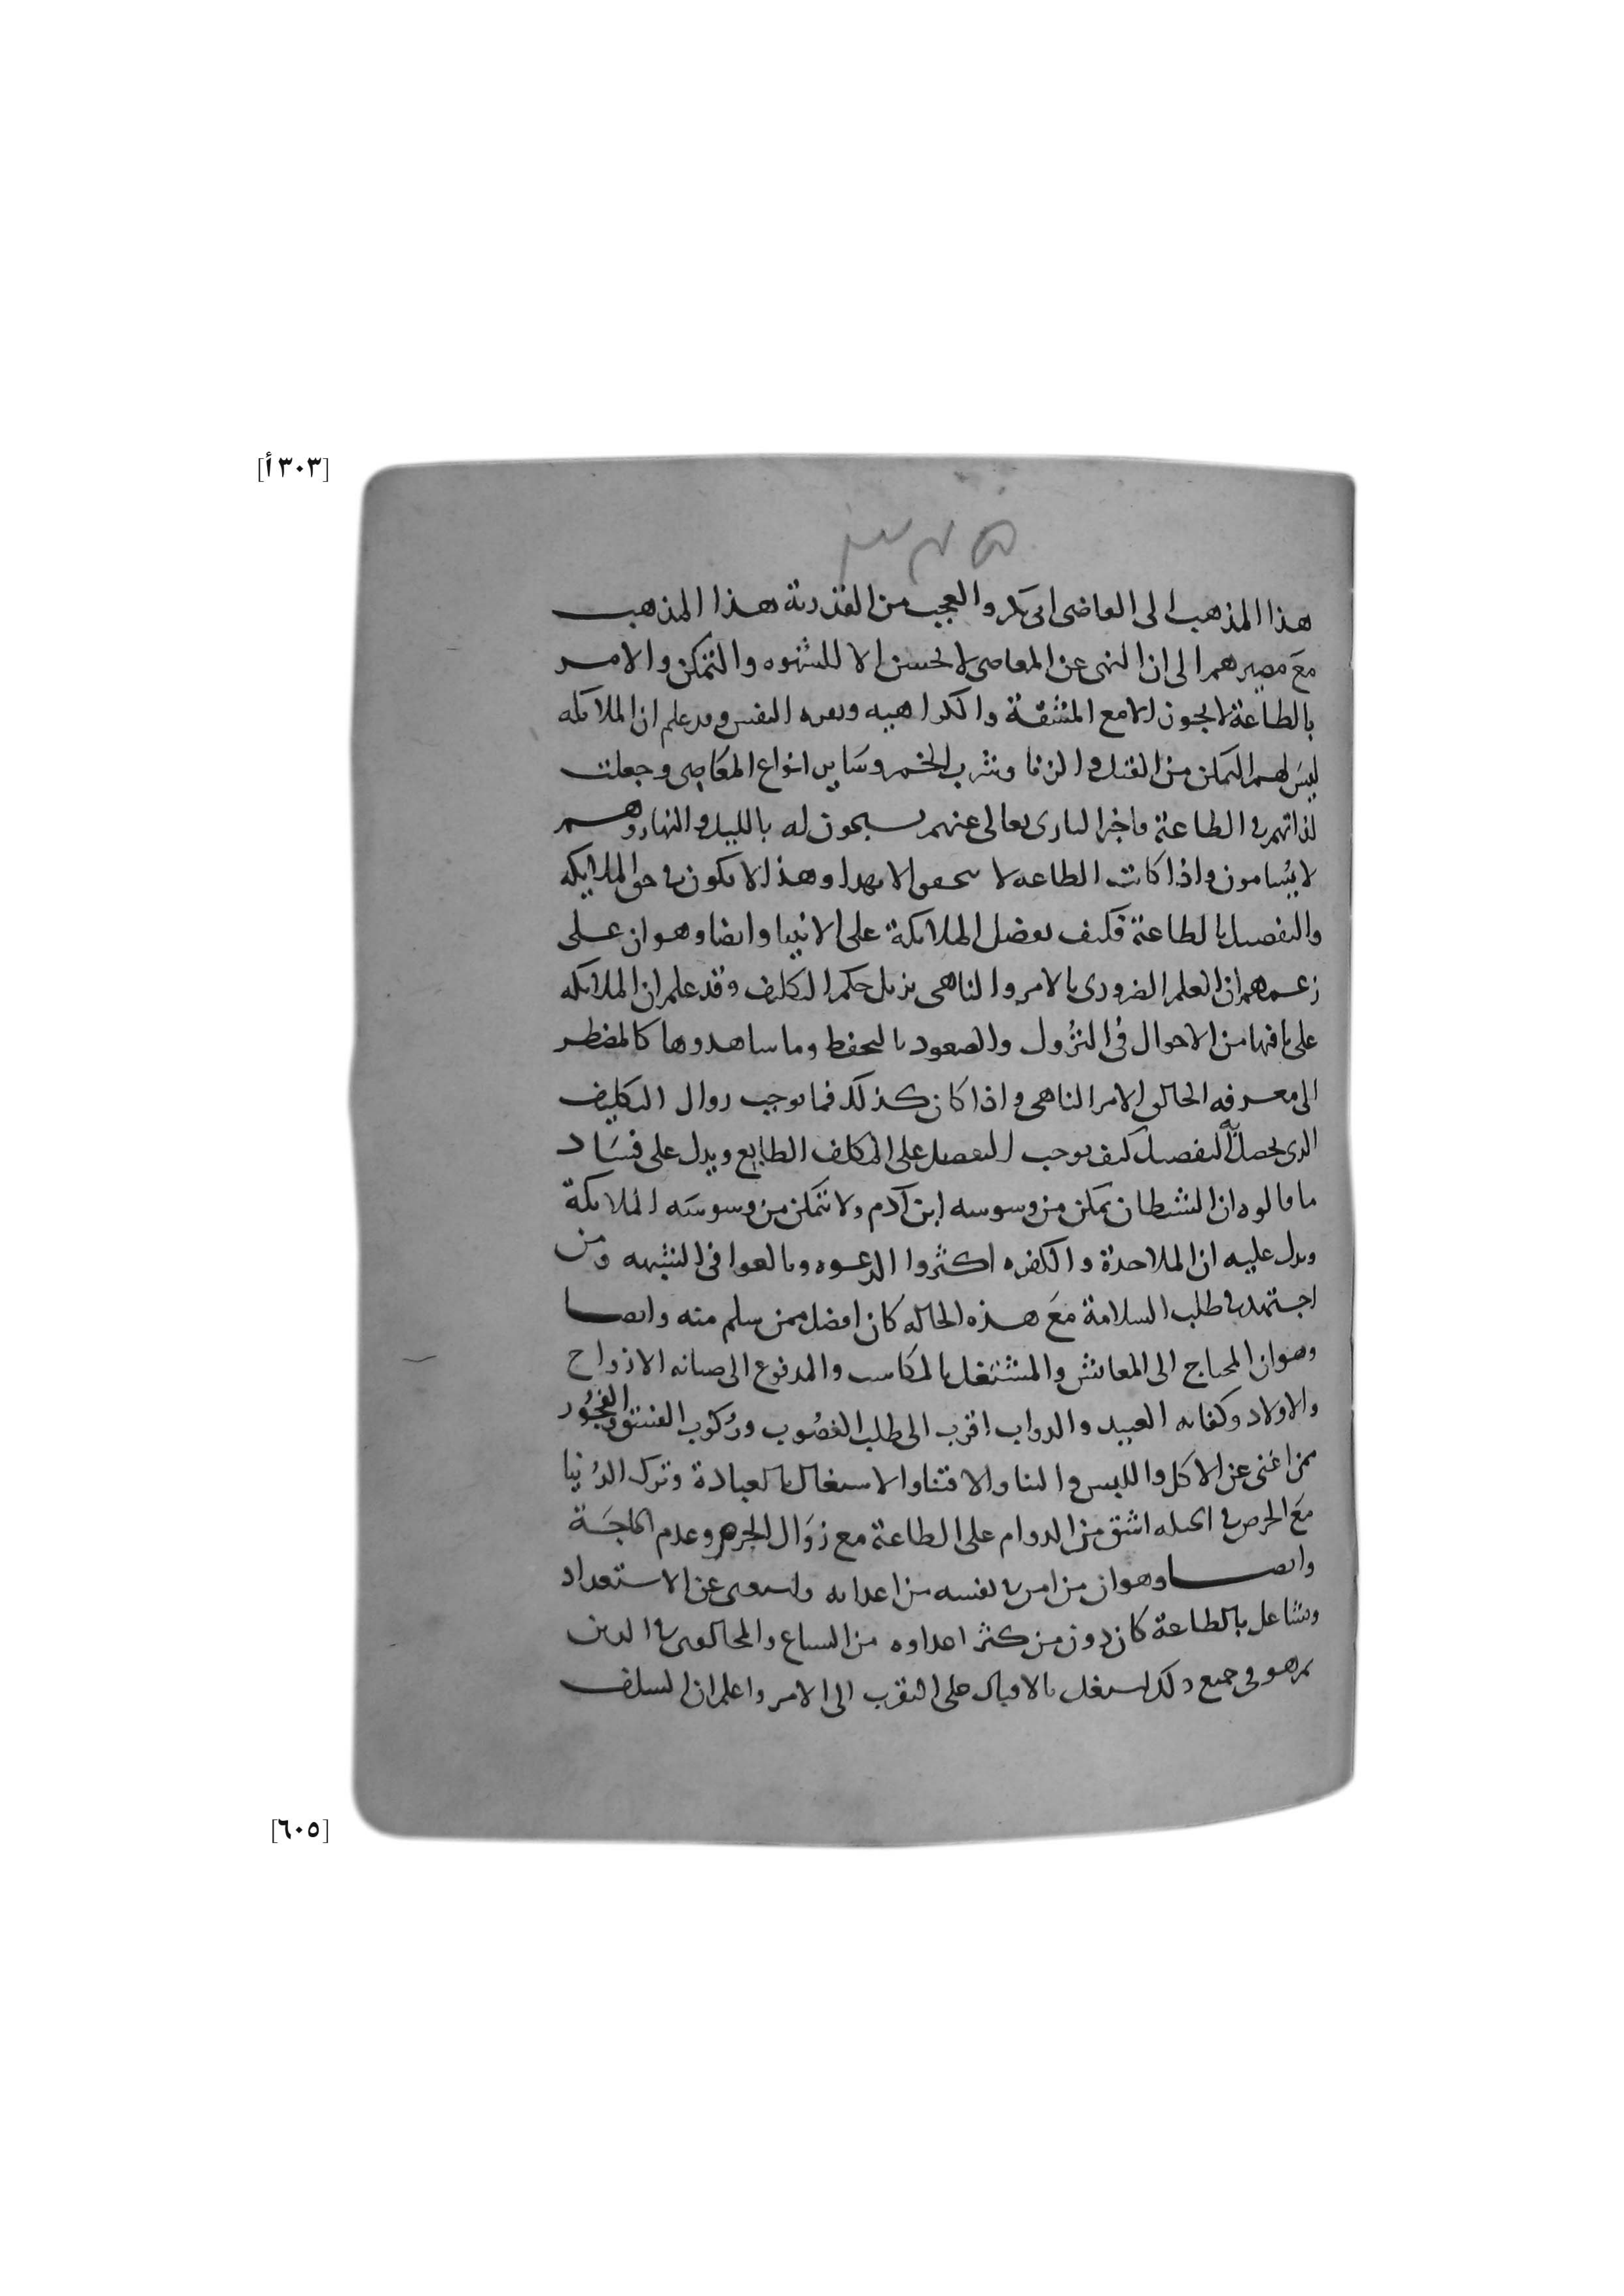 [٣٠٣أ]
هذا المذهب الى القاضى ابى بكر والعجب من القدرية هذا المذهب
مع مصيرهم الى ان النهى عن المعاصى لا يحسن الا للشهوه والتمكن والامر
بالطاعة لا يجوز الا مع المشقة والكراهيه ونفره النفس وقد علم ان الملايكه
ليس لهم التمكن من القتل والزنا وشرب الخمر وساير انواع المعاصى وجعلت
لذاتهم فى الطاعة فاخبر البارى تعالى عنهم يسبحون له بالليل والنهار وهم
لا يسامون واذا كانت الطاعه لا تتحقق الا بهذا وهذا لا يكون فى حق الملايكه
والتفضيل بالطاعة فكيف تفضل الملايكة على الانبيا وايضا وهو ان على
زعمهم ان العلم الضرورى بالامر والناهى يزيل حكم التكليف وقد علم ان الملايكه
على ما فيها من الاحوال فى النزول والصعود بالتحفظ وما شاهدوها كالمضطر
الى معرفه الخالق الامر الناهى واذا كان كذلك فما يوجب زوال التكليف
الذى يحصل به التفضيل كيف يوجب التفضيل على المكلف الطايع ويدل على فساد
ما قالوه ان الشيطان تمكن من وسوسه ابن آدم ولا تتمكن من وسوسه الملايكة
ويدل عليه ان الملاحدة والكفره اكثروا الدعوه وبالغوا فى الشبهه ومن
اجتهد فى طلب السلامة مع هذه الحاله كان افضل ممن سلم منه وايضا
وهو ان المحتاج الى المعاش والمشتغل بالمكاسب والمدفوع الى صيانه الازواج
والاولاد وكفايه العبيد والدواب اقرب الى طلب الغصوب وركوب الفسق والفجور
ممن اغنى عن الاكل واللبس والبنا والاقتنا والاشتغال بالعبادة وترك الدنيا
مع الحرص فى الجبله اشق من الدوام على الطاعة مع زوال الحرص وعدم الحاجة
وايضا وهو ان من امن على نفسه من اعدايه واستغنى عن الاستعداد
وتشاغل بالطاعة كان دون من كثر اعداوه من السباع والمخالفين فى الدين
ثم هو فى جميع ذلك اشتغل بالاقبال على التقرب الى الامر واعلم ان السلف
[٦٠٥]